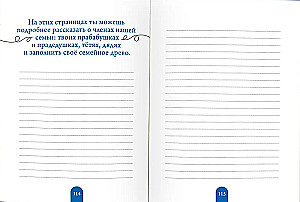 На этих страницах ты можешь
подробнее рассказать о членах нашей
семьи: твоих прабабушках
и прадедушках, тётях, дядях
и заполнить своё семейное древо.
114
115